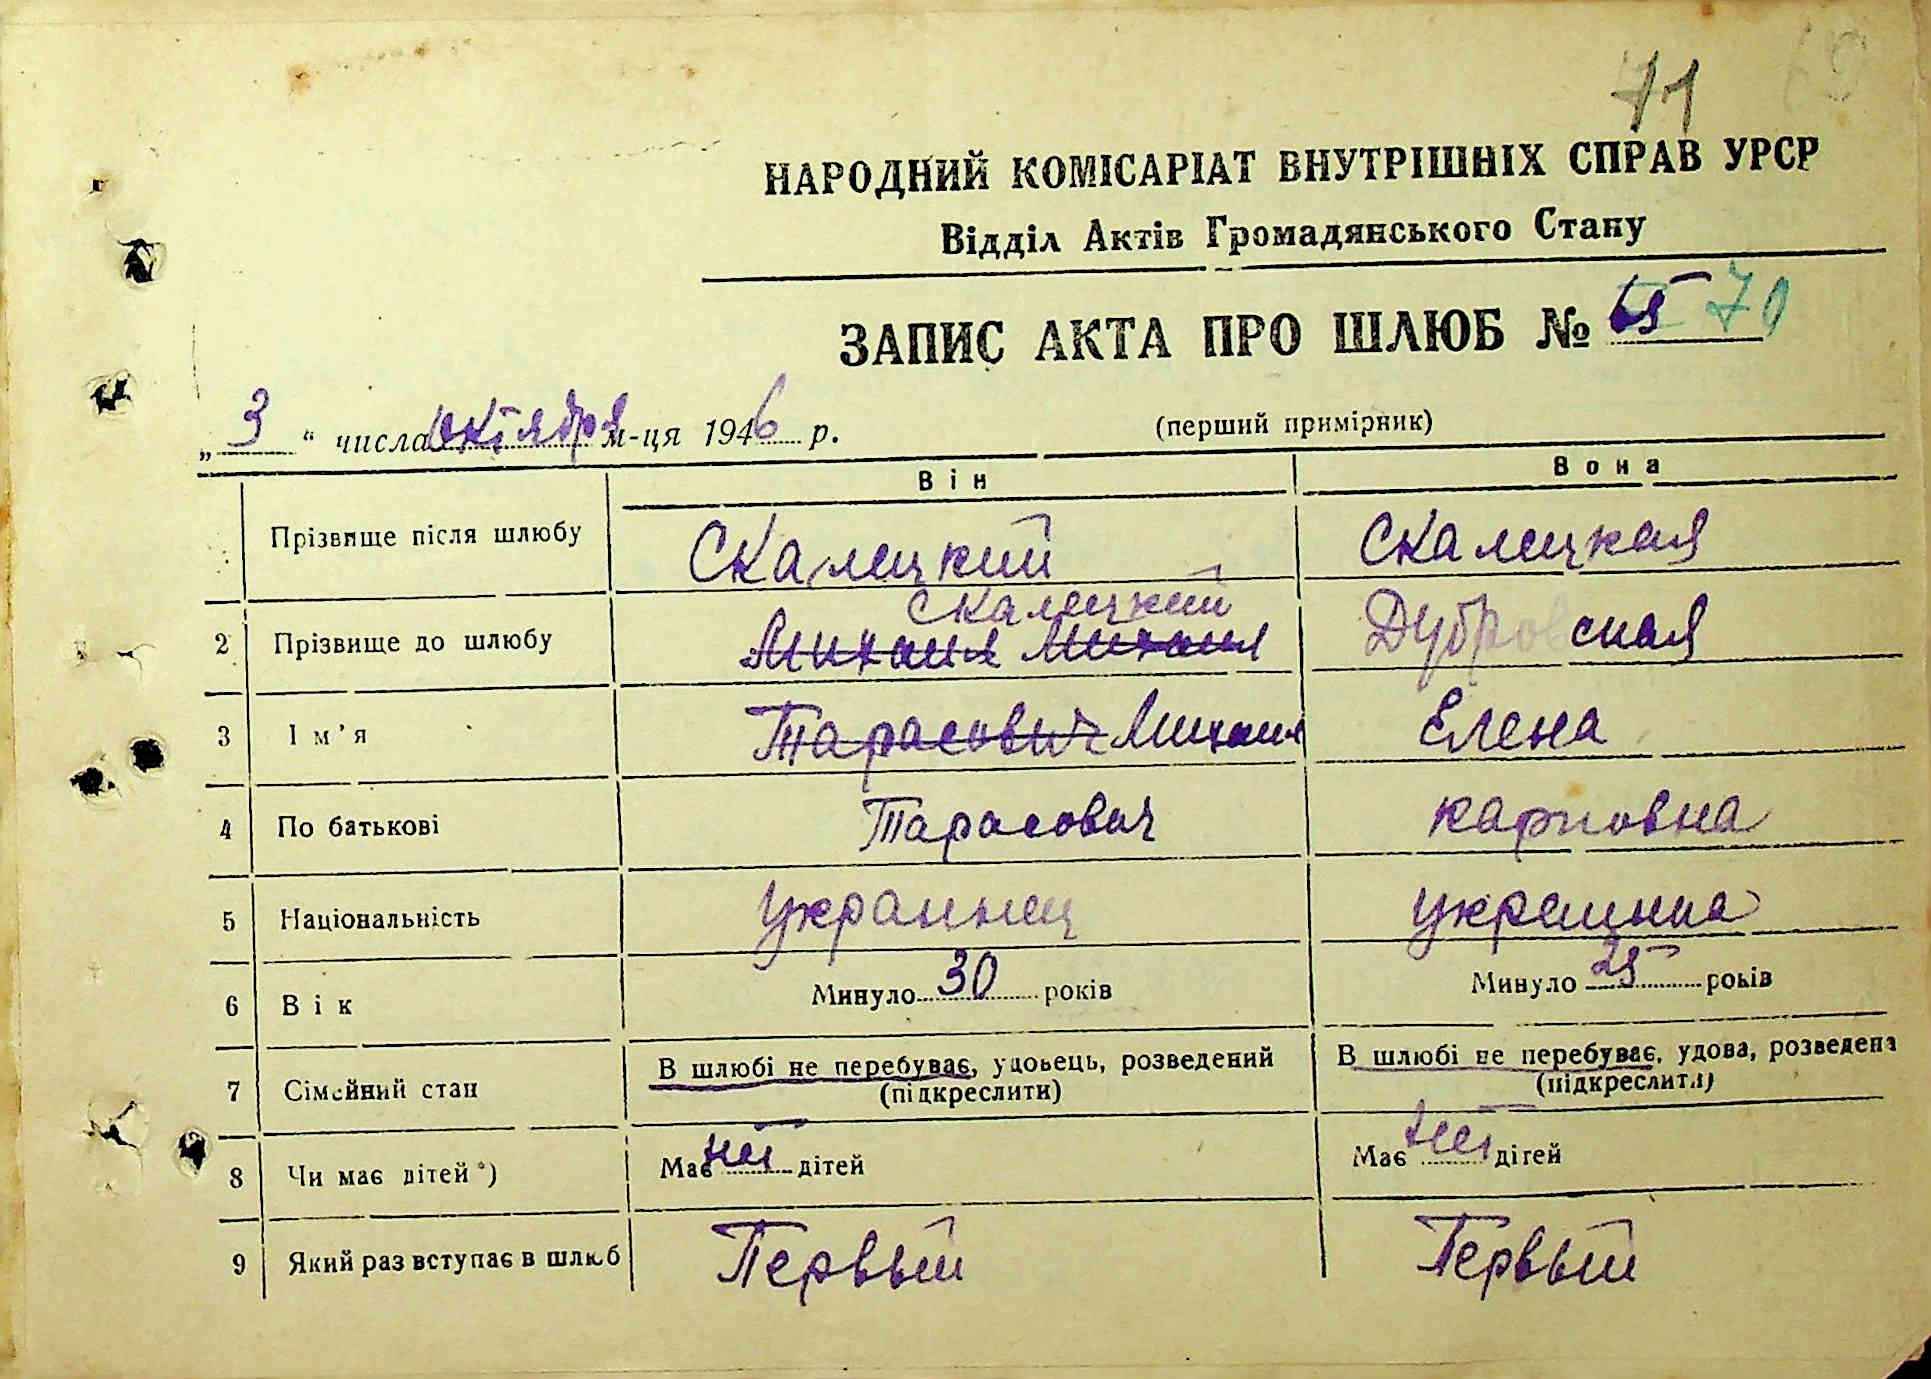 71
НАРОДНИЙ КОМІСАРІАТ ВНУТРІШНІХ СПРАВ УРСР
Відділ Актів Громадянського Стану
ЗАПИС АКТА ПРО ШЛЮБ № 65 70
„3“ числа октября м-ця 1946 р. (перший примірник)
Він Вона
Прізвище після шлюбу Скалецкий Скалецкая
Скалецкий
2 Прізвище до шлюбу Михаил Михаил Дубровская
3 Ім'я Тарасович Михаил Елена
4 По батькові Тарасович Карповна
5 Національність Украинец Украинка
6 Вік Минуло 30 років Минуло 25 років
7 Сімейний стан В шлюбі не перебуває, удовець, розведений В шлюбі не перебуває, удова, розведена
(підкреслити) (підкреслити)
8 Чи має дітей *) Має нет дітей Має нет дітей
9 Який раз вступає в шлюб Первый Первый